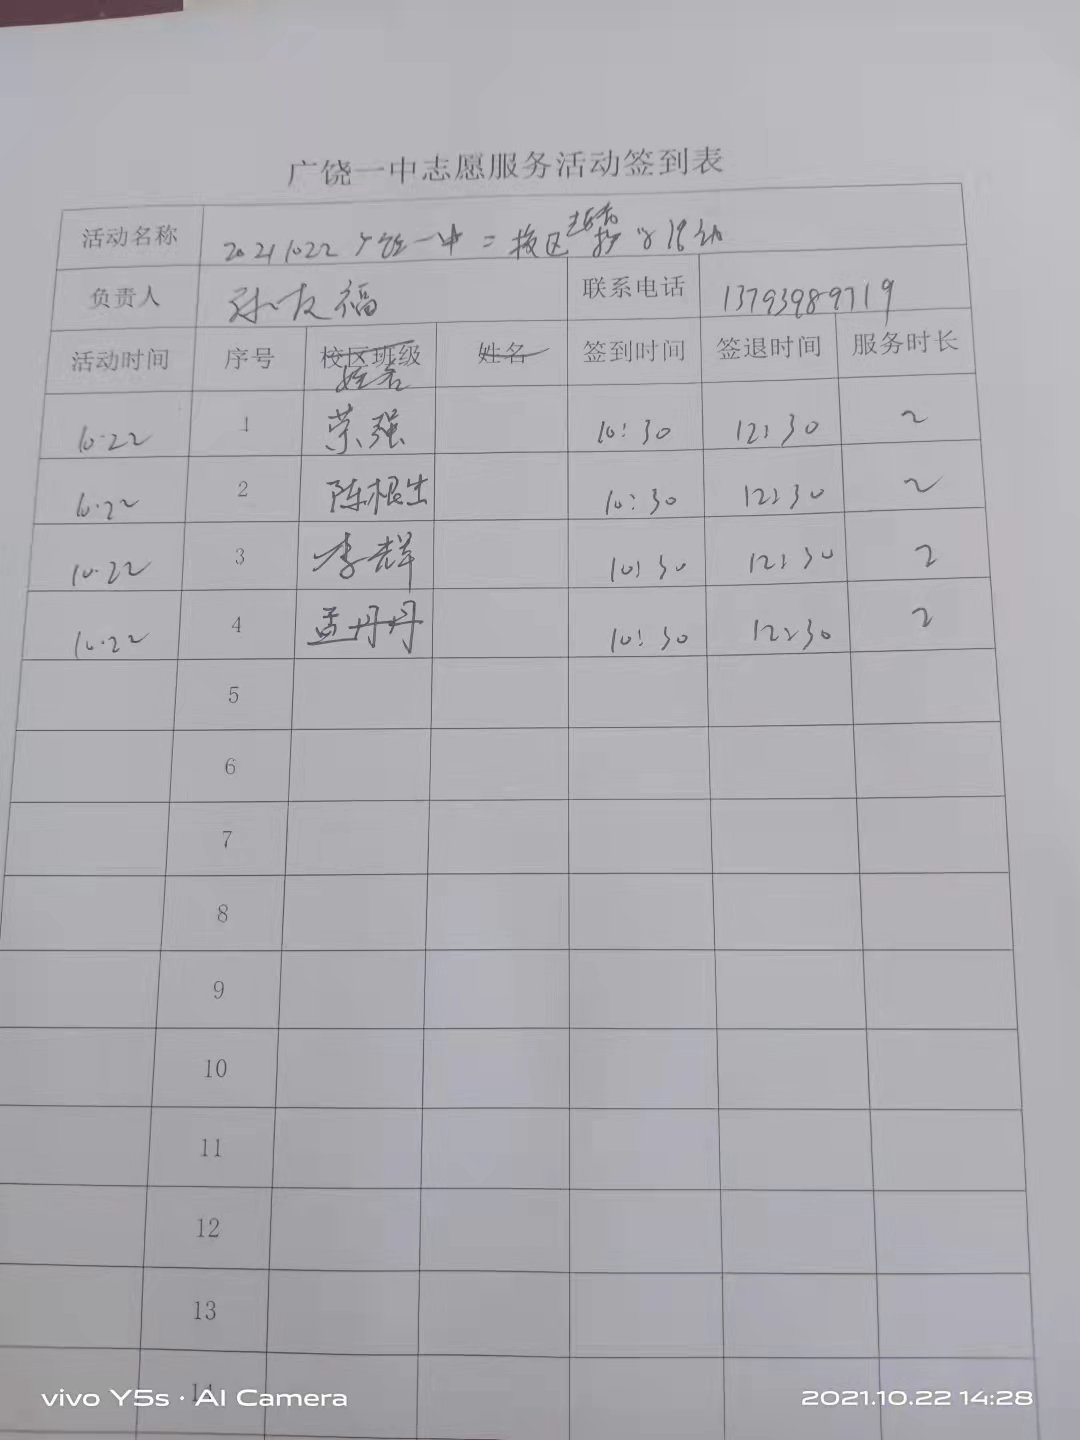 广饶一中志愿服务活动签到表
活动名称 20211022广饶一中二校区 活动
负责人 孙友福 联系电话 13793989719
活动时间 序号 校区班级 姓名 签到时间 签退时间 服务时长
姓名
10.22 1 荣强 10:30 12:30 2
10.22 2 陈根生 10:30 12:30 2
10.22 3 李群 10:30 12:30 2
10.22 4 孟丹丹 10:30 12:30 2
5
6
7
8
9
10
11
12
13
14
vivo Y5s · AI Camera 2021.10.22 14:28